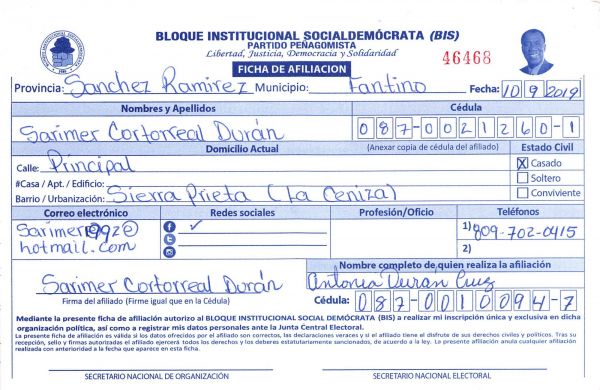 BLOQUE INSTITUCIONAL SOCIALDEMÓCRATA (BIS)
PARTIDO PEÑAGOMISTA
Libertad, Justicia, Democracia y Solidaridad
46468
FICHA DE AFILIACION
Provincia: Sanchez Ramirez Municipio: Fantino Fecha: 10 9 2019
Nombres y Apellidos Cédula
Sarimer Cortorreal Durán 087-0021260-1
Domicilio Actual (Anexar copia de cédula del afiliado) Estado Civil
Calle: Principal X Casado
#Casa / Apt. / Edificio: Soltero
Barrio / Urbanización: Sierra Prieta (La Ceniza) Conviviente
Correo electrónico Redes sociales Profesión/Oficio Teléfonos
Sarimer1992@ ✓ 1) 809-702-0415
hotmail.com 2)
Nombre completo de quien realiza la afiliación
Sarimer Cortorreal Durán Antonia Durán Cruz
Firma del afiliado (Firme igual que en la Cédula) Cédula: 087-0010094-7
Mediante la presente ficha de afiliación autorizo al BLOQUE INSTITUCIONAL SOCIAL DEMÓCRATA (BIS) a realizar mi inscripción única y exclusiva en dicha
organización política, así como a registrar mis datos personales ante la Junta Central Electoral.
La presente ficha de afiliación es válida si los datos ofrecidos por el afiliado son correctos, las declaraciones veraces y si el afiliado tiene el disfrute de sus derechos civiles y políticos. Tras su
recepción, sello y firmas autorizadas el afiliado ejercerá todos los derechos y los deberes estatutariamente sancionados, de acuerdo a la ley. La presente afiliación anula cualquier afiliación
realizada con anterioridad a la fecha que aparece en esta ficha.
SECRETARIO NACIONAL DE ORGANIZACIÓN SECRETARIO NACIONAL ELECTORAL